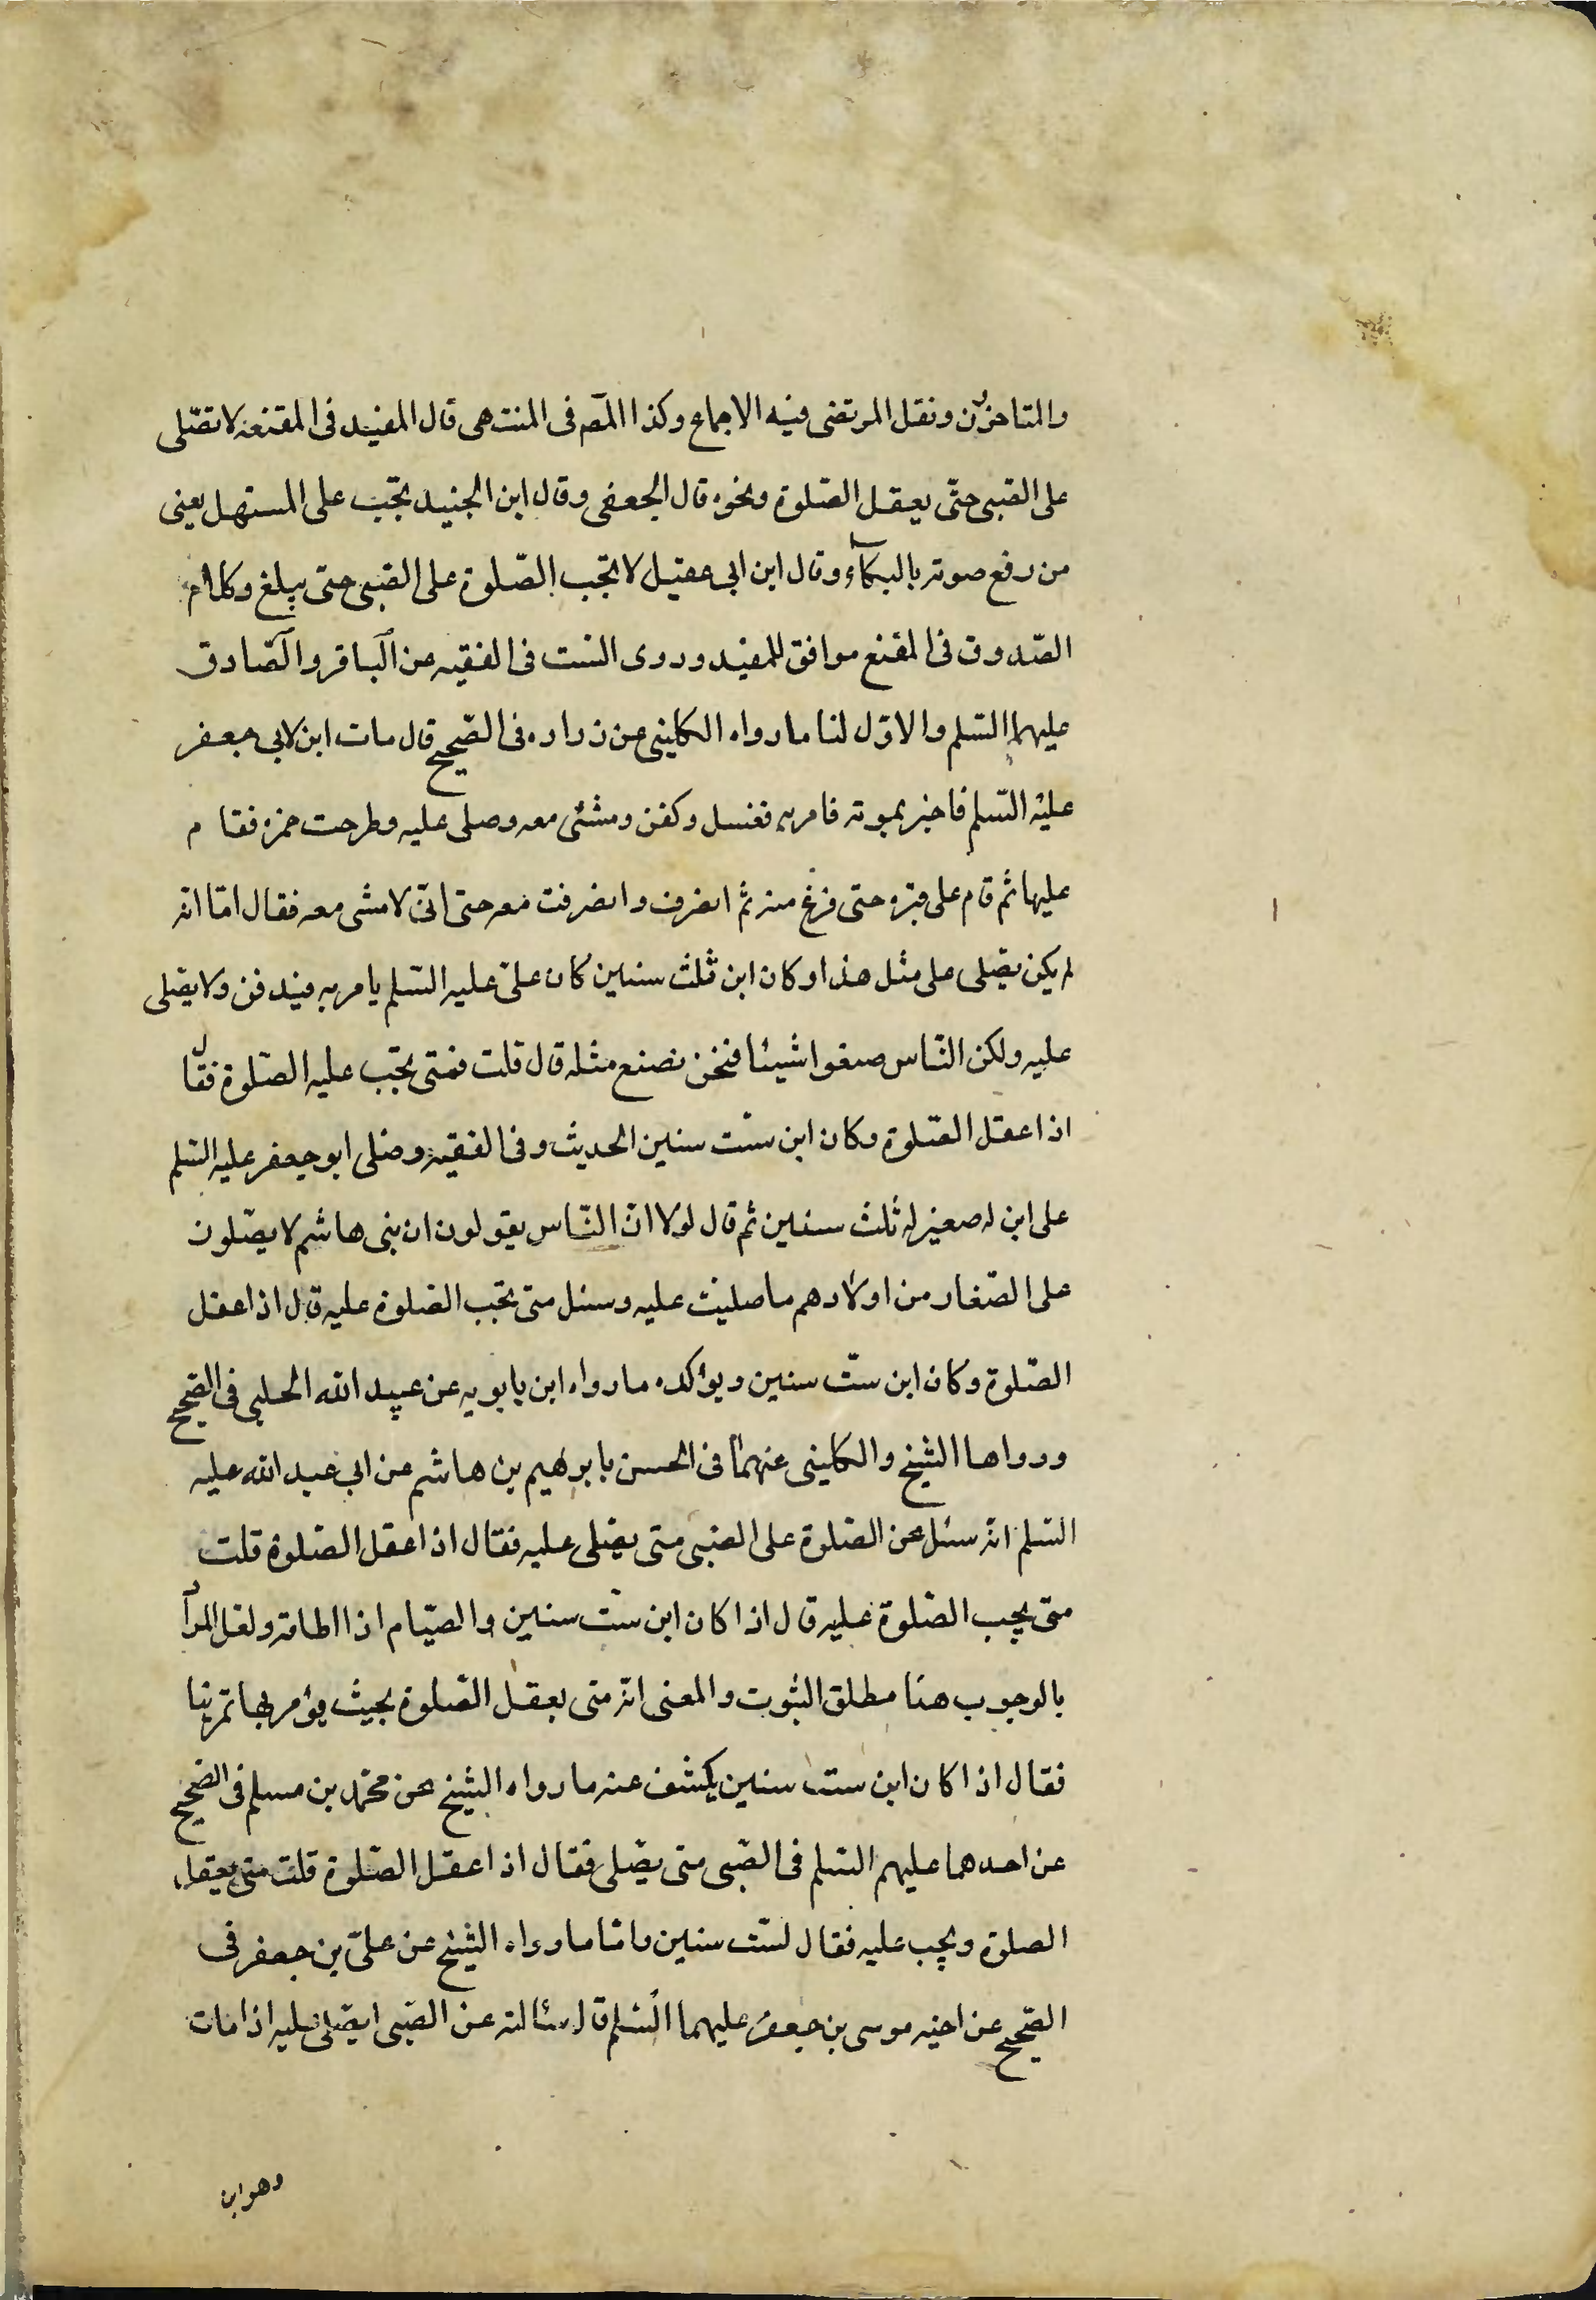 والمتاخرين ونقل المرتضى فيه الاجماع وكذا المصّ فى المنتهى قال المفيد فى المقنعة لا تصّلى
على الصّبى حتّى يعقل الصّلوة ونحوه قال الجعفى وقال ابن الجنيد تجب على المستهل يعنى
من رفع صوته بالبكاء وقال ابن ابى عقيل لا تجب الصّلوة على الصّبى حتى يبلغ وكلام
الصّدوق فى المقنع موافق للمفيد وروى الست فى الفقيه عن الباقر والصّادق
عليهما السّلم والاوّل لنا ما رواه الكلينى عن زراره فى الصّحيح قال مات ابن لابى جعفر
عليه السّلم فاخبر بموته فامر به فغسل وكفن ومشى معه وصلى عليه وطرحت خمرة فقام
عليها ثم قام على قبره حتى فرغ منه ثم انصرف وانصرفت معه حتى انى لامشى معه فقال امّا انّه
لم يكن يصّلى على مثل هذا وكان ابن ثلث سنين كان علىّ عليه السّلم يامر به فيدفن ولا يصّلى
عليه ولكن النّاس صنعوا شيئا فنحن نصنع مثله قال قلت فمتى تجب عليه الصّلوة فقال
اذا عقل الصّلوة وكان ابن ستّ سنين الحديث وفى الفقيه وصلى ابو جعفر عليه السّلم
على ابن له صغير له ثلث سنين ثم قال لولا انّ النّاس يقولون ان بنى هاشم لا يصّلون
على الصّغار من اولادهم ما صليت عليه وسئل متى تجب الصّلوة عليه قال اذا عقل
الصّلوة وكان ابن ستّ سنين ويؤكده ما رواه ابن بابويه عن عبيد الله الحلبى فى الصّحيح
ورواها الشيخ والكلينى عنهما فى الحسن بابرهيم بن هاشم عن ابى عبد الله عليه
السّلم انّه سئل عن الصّلوة على الصّبى متى يصّلى عليه فقال اذا عقل الصّلوة قلت
متى يجب الصّلوة عليه قال اذا كان ابن ستّ سنين والصّيام اذا اطاقه ولعل المراد
بالوجوب هنا مطلق الثبوت والمعنى انّه متى يعقل الصّلوة بحيث يؤمر بها تمرينا
فقال اذا كان ابن ست سنين يكشف عنه ما رواه الشيخ عن محمّد بن مسلم فى الصّحيح
عن احدهما عليهم السّلم فى الصّبى متى يصّلى فقال اذا عقل الصّلوة قلت متى يعقل
الصلوة ويجب عليه فقال لستّ سنين وامّا ما رواه الشيخ عن علىّ بن جعفر فى
الصّحيح عن اخيه موسى بن جعفر عليهما السّلم قال سئالته عن الصّبى ايصّلى عليه اذا مات
وهو ابن